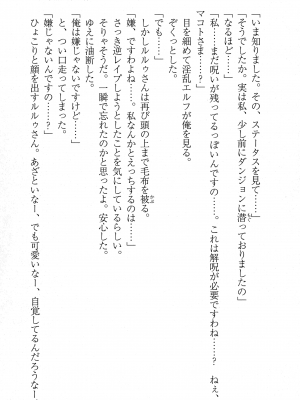 「いま知りました。その、ステータスを見て……」
「そうでしたか。実は私、少し前にダンジョンに潜っておりましたの」
「なるほど……」
「私……まだ呪いが残ってるっぽいんですの……。これは解呪が必要ですわね……? ねぇ、
マコトさま……?」
目を細めて淫乱エルフが俺を見る。
ぞくっとした。
「でも……」
しかしルルゥさんは再び頭の上まで毛布を被る。
「嫌、ですわよね……。私なんかとえっちするのは……」
さっき逆レイプしようとしたことを気にしているらしい。
そりゃそうだ。一瞬で忘れたのかと思ったよ。安心した。
ゆえに油断した。
「俺は嫌じゃないですけど……」
と、つい口走ってしまった。
「嫌じゃないんですの……?」
ひょこりと顔を出すルルゥさん。あざといなー、でも可愛いなー、自覚してるんだろうなー。